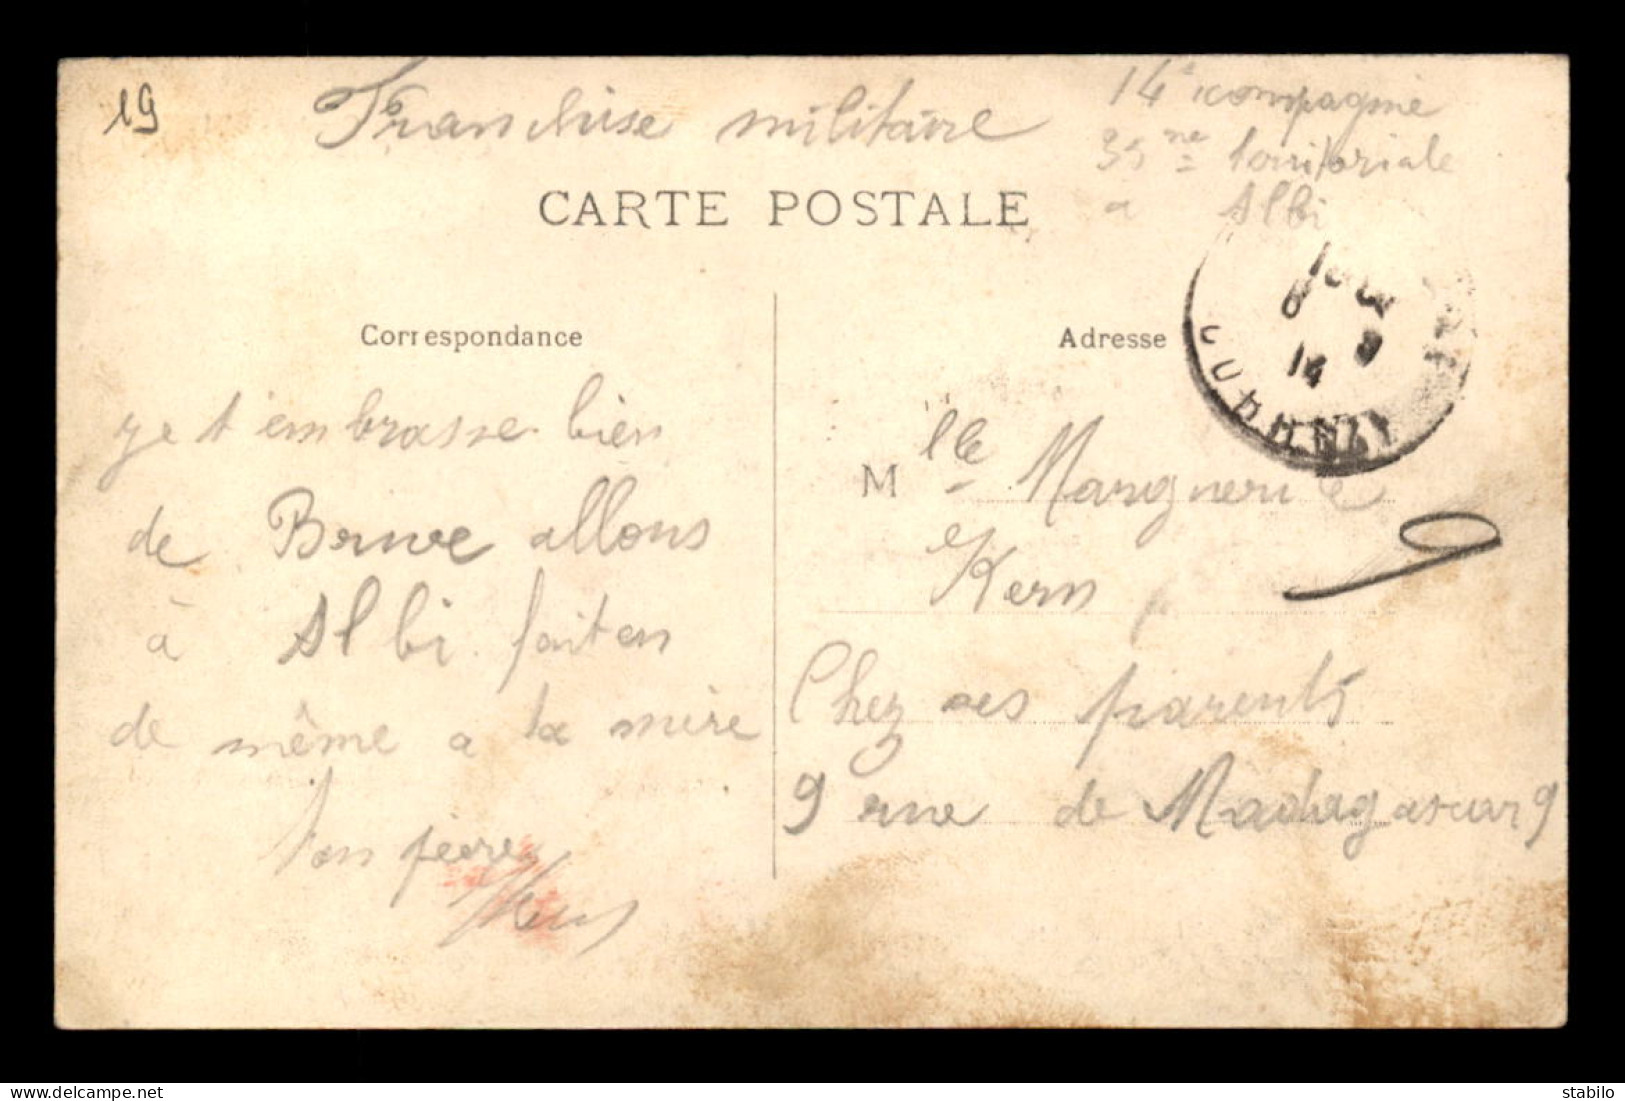 19
Franchise militaire
14e compagnie
35me territoriale
a Albi
CARTE POSTALE
Correspondance
Adresse
14
je t'embrasse bien
de Brive allons
à Albi fait en
de même a ta mère
Ton père
Kern
Mlle Marguerite
Kern
Chez ses parents
9 rue de Madagascar 9
9
stabilo